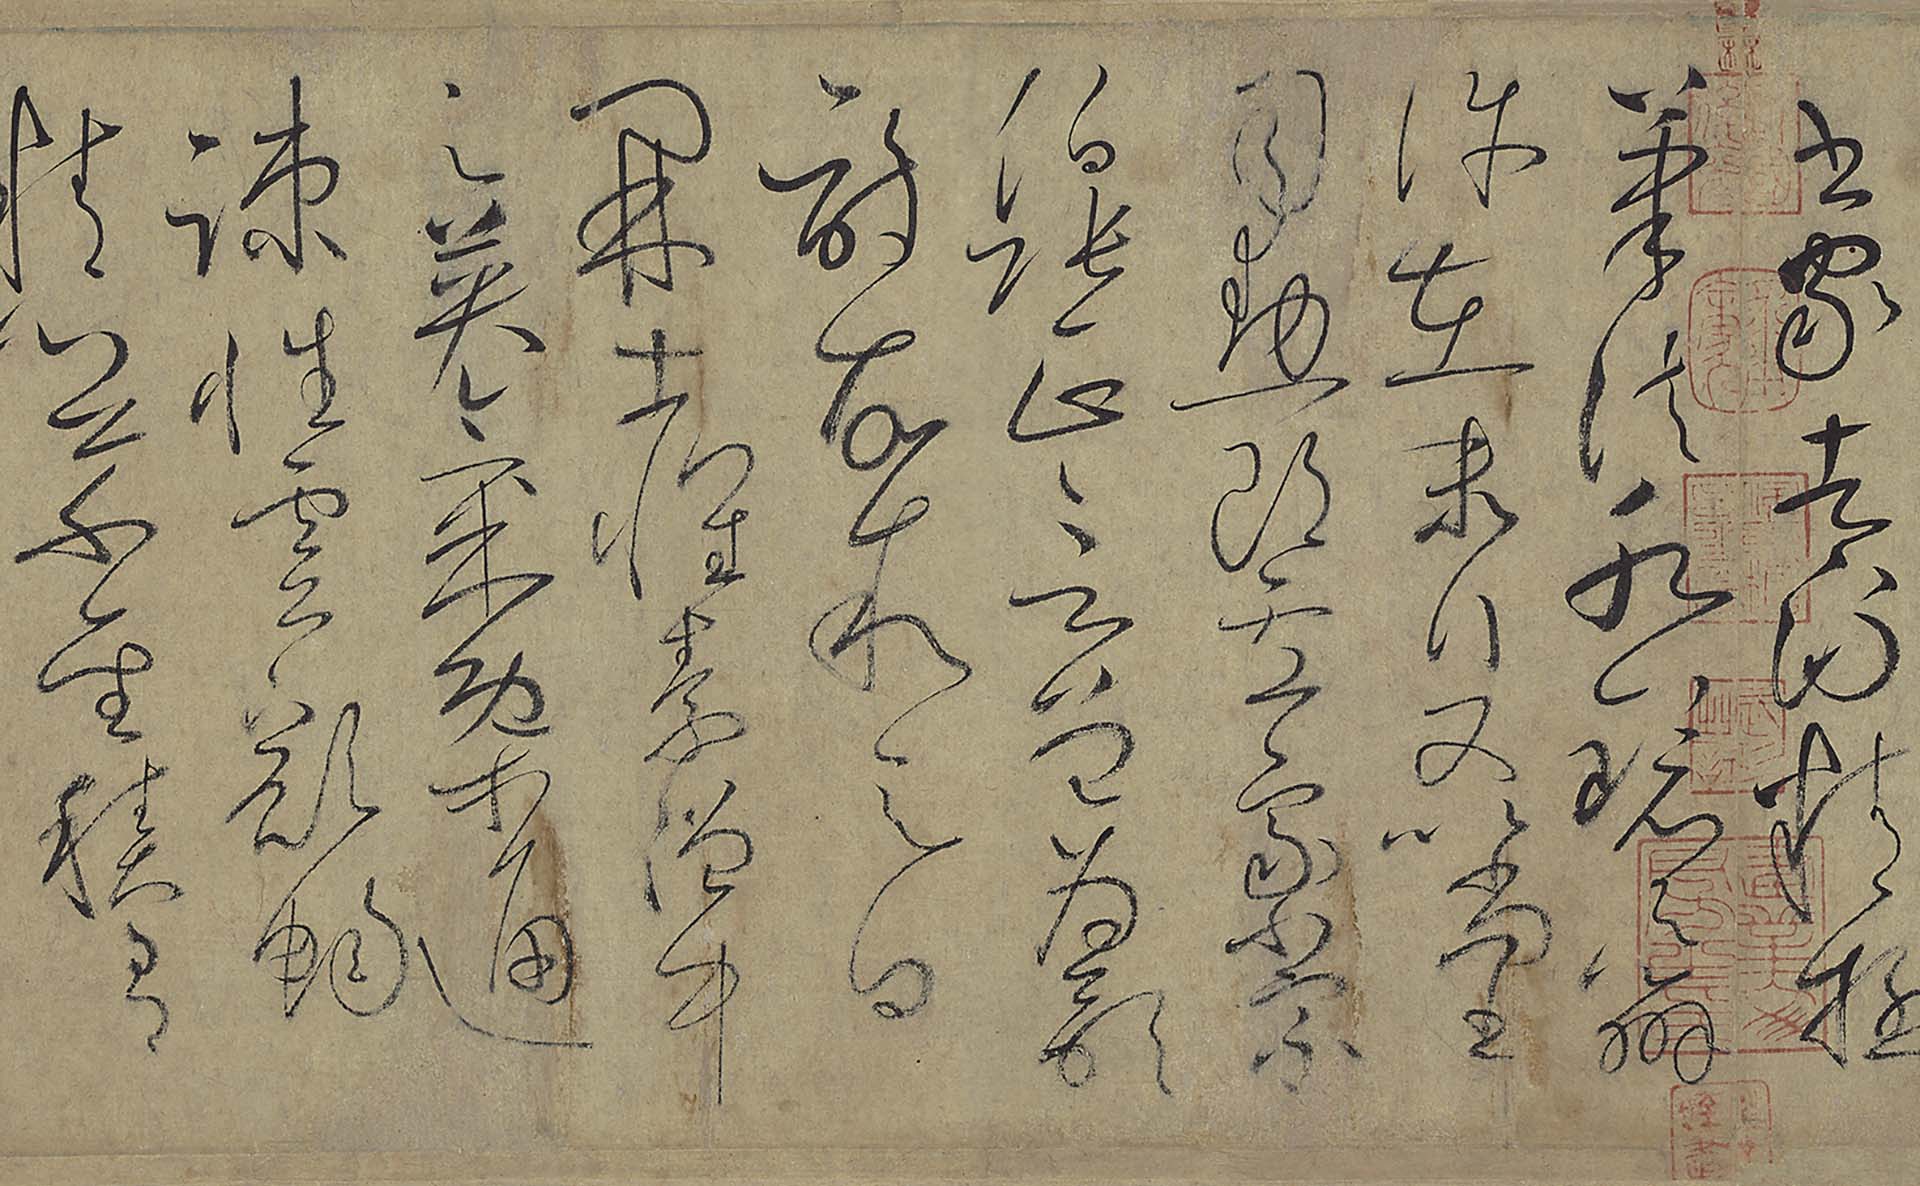 書家者流精極
筆法水鏡之辯
許在末行又以尚書
司勳郎盧象小宗
伯張正言曾為歌
詩故敘之曰
開士懷素僧中
之英氣概通
疎性靈豁暢
精心草聖積有